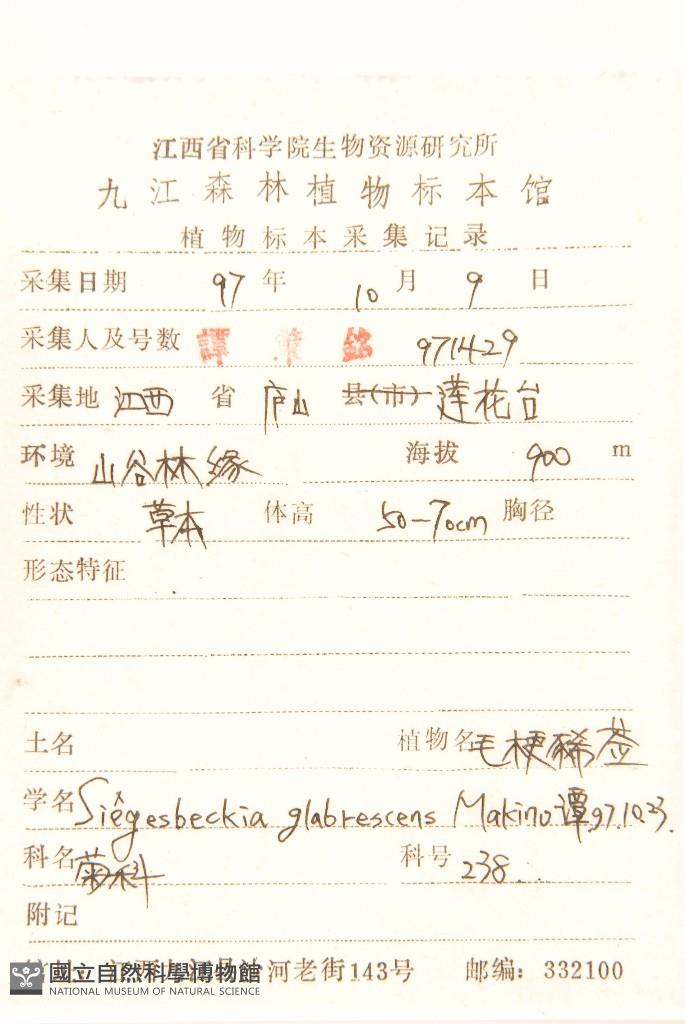 江西省科学院生物资源研究所
九江森林植物标本馆
植物标本采集记录
采集日期 97 年 10 月 9 日
采集人及号数 譚 銘 971429
采集地 江西 省 庐山 县(市) 莲花台
环境 山谷林缘 海拔 900 m
性状 草本 体高 50-70cm 胸径
形态特征
土名 植物名 毛梗豨莶
学名 Siegesbeckia glabrescens Makino 谭 97.10.23.
科名 菊科 科号 238
附记
河老街143号 邮编: 332100
國立自然科學博物館
NATIONAL MUSEUM OF NATURAL SCIENCE